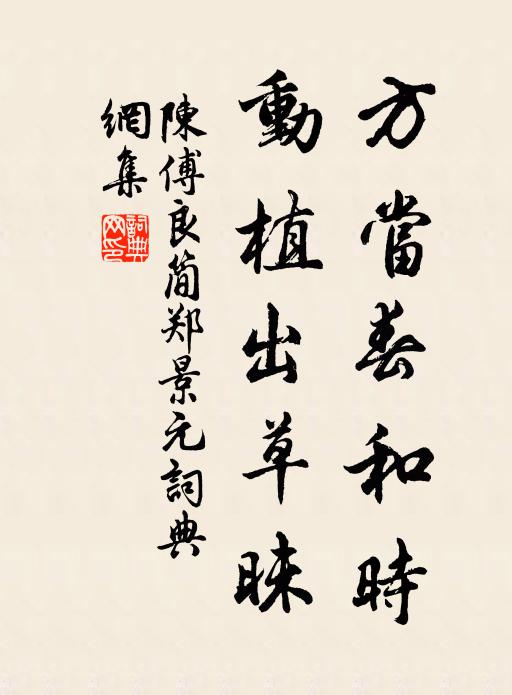 方當春和時
動植出草昧
陳傅良蕑郑景元詞典
網集
詞典
网印